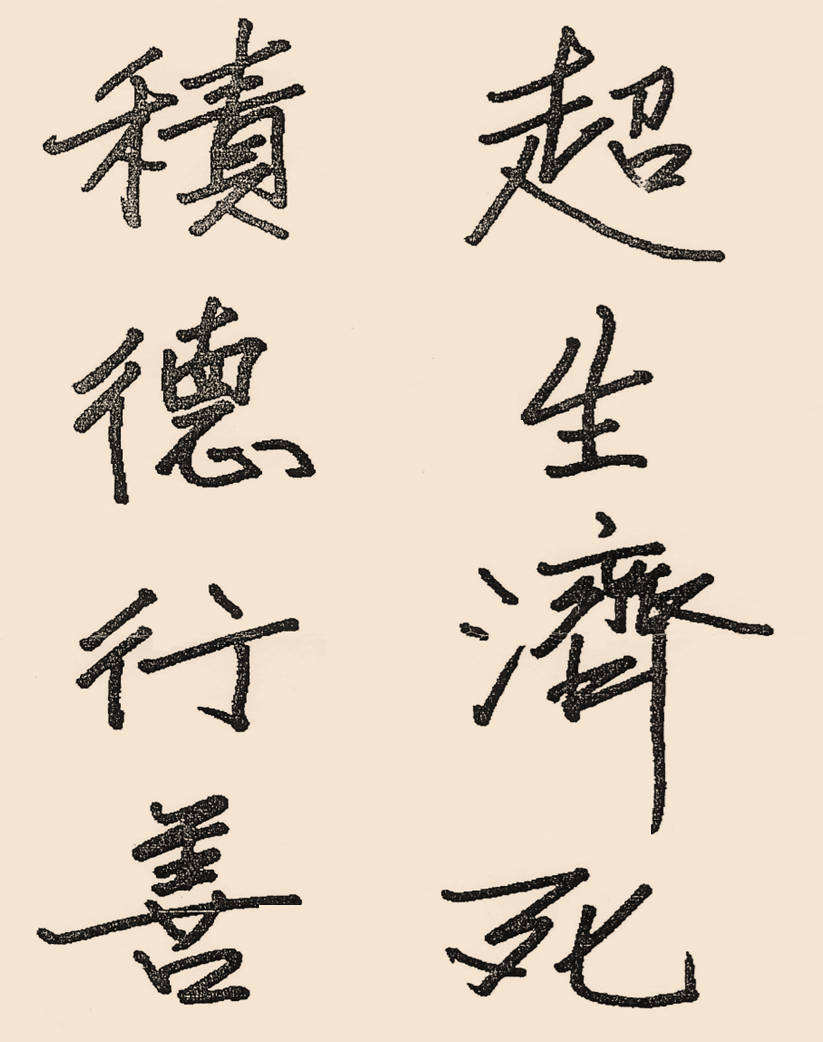 超生濟死
積德行善